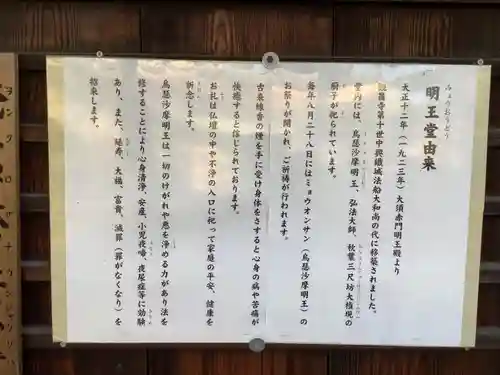 みょうおうどう
明王堂由来
大正十二年（一九二三年）大須赤門明王殿より
観音寺第十世中興鐵城法船大和尚の代に移築されました。
堂内には、烏瑟沙摩明王、弘法大師、秋葉三尺坊大権現の
厨子が祀られています。
毎年八月二十八日にはミョウオンサン（烏瑟沙摩明王）の
お祭りが開かれ、ご祈祷が行われます。
古来線香の煙を手に受け身体をさすると心身の病や苦痛が
快癒すると信じられております。
お札は仏壇の中や不浄の入口に祀って家庭の平安、健康を
祈念します。
烏瑟沙摩明王は一切のけがれや悪を浄める力があり法を
修することにより心身清浄、安産、小児夜啼、夜尿症等に効験
あり、また、延寿、大福、富貴、滅罪（罪がなくなり）を
招来します。